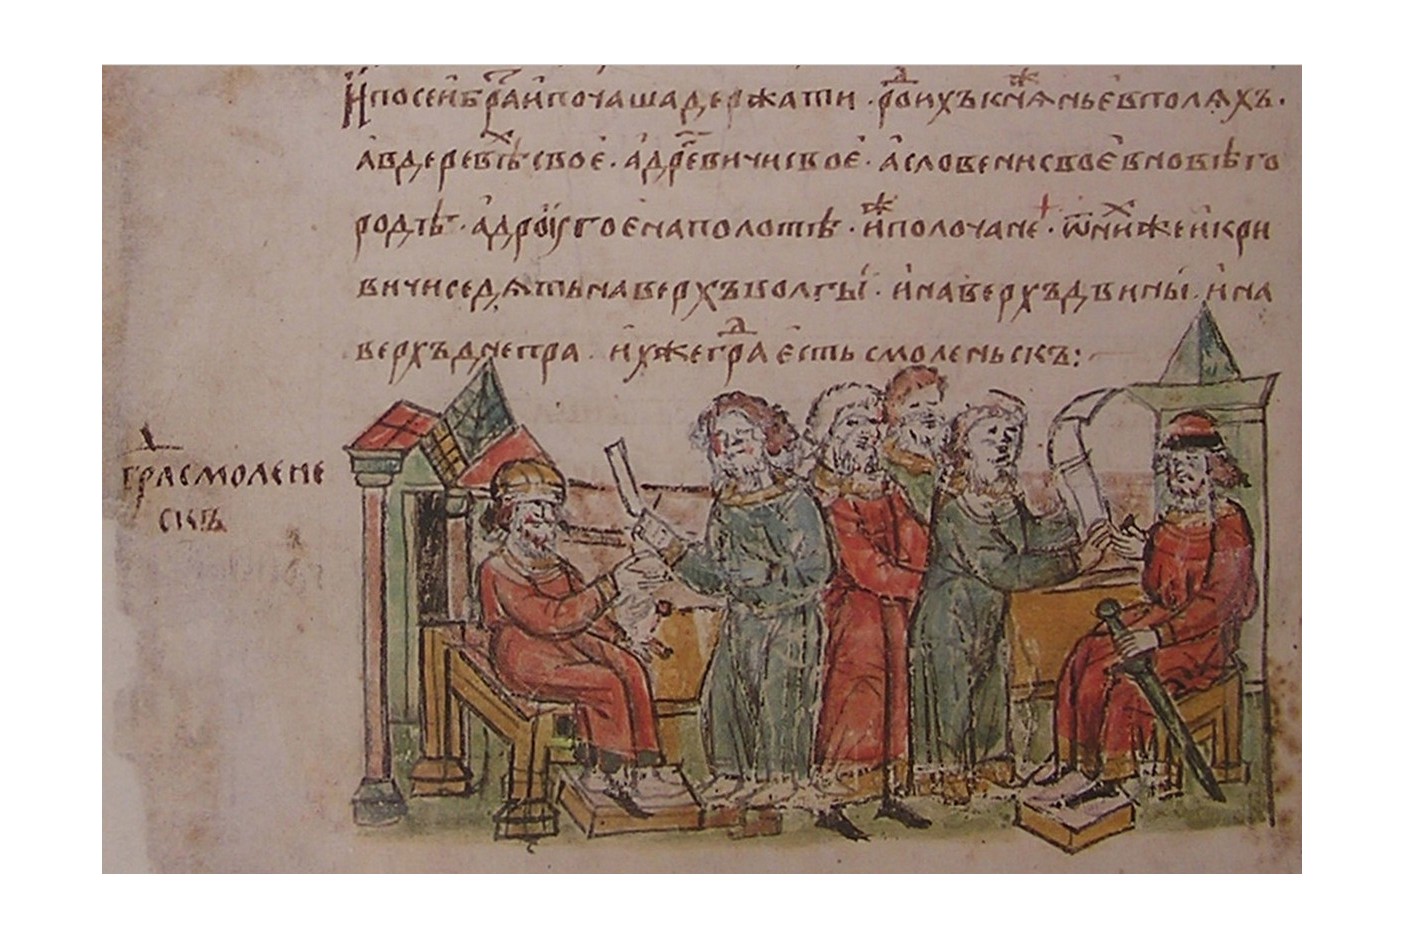 И по сеи бра́и почаша держати. ро҃ⷣ ихъ кнѧⷤнье в полѧхъ.
а в деревⷯѣ свое. а дрѐвичи свое. а словени свое в новѣго
родѣ. а другое на полотѣ. иⷤ полочане. ѿ ниⷯ же и кри
вичи седѧть на верхъ волгы. и на верхъ двины. и на
верхъ днепра. ихже граⷣ есть смоленьскъ:
граⷣ смолене
скъ